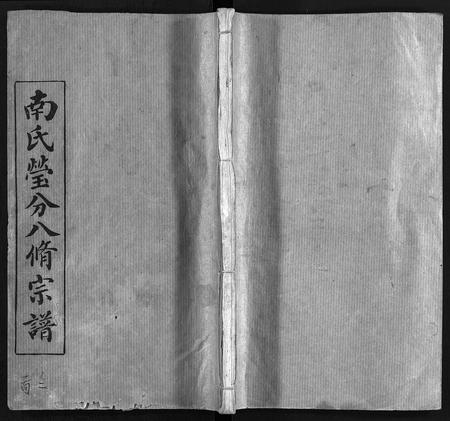 南氏瑩分八脩宗譜